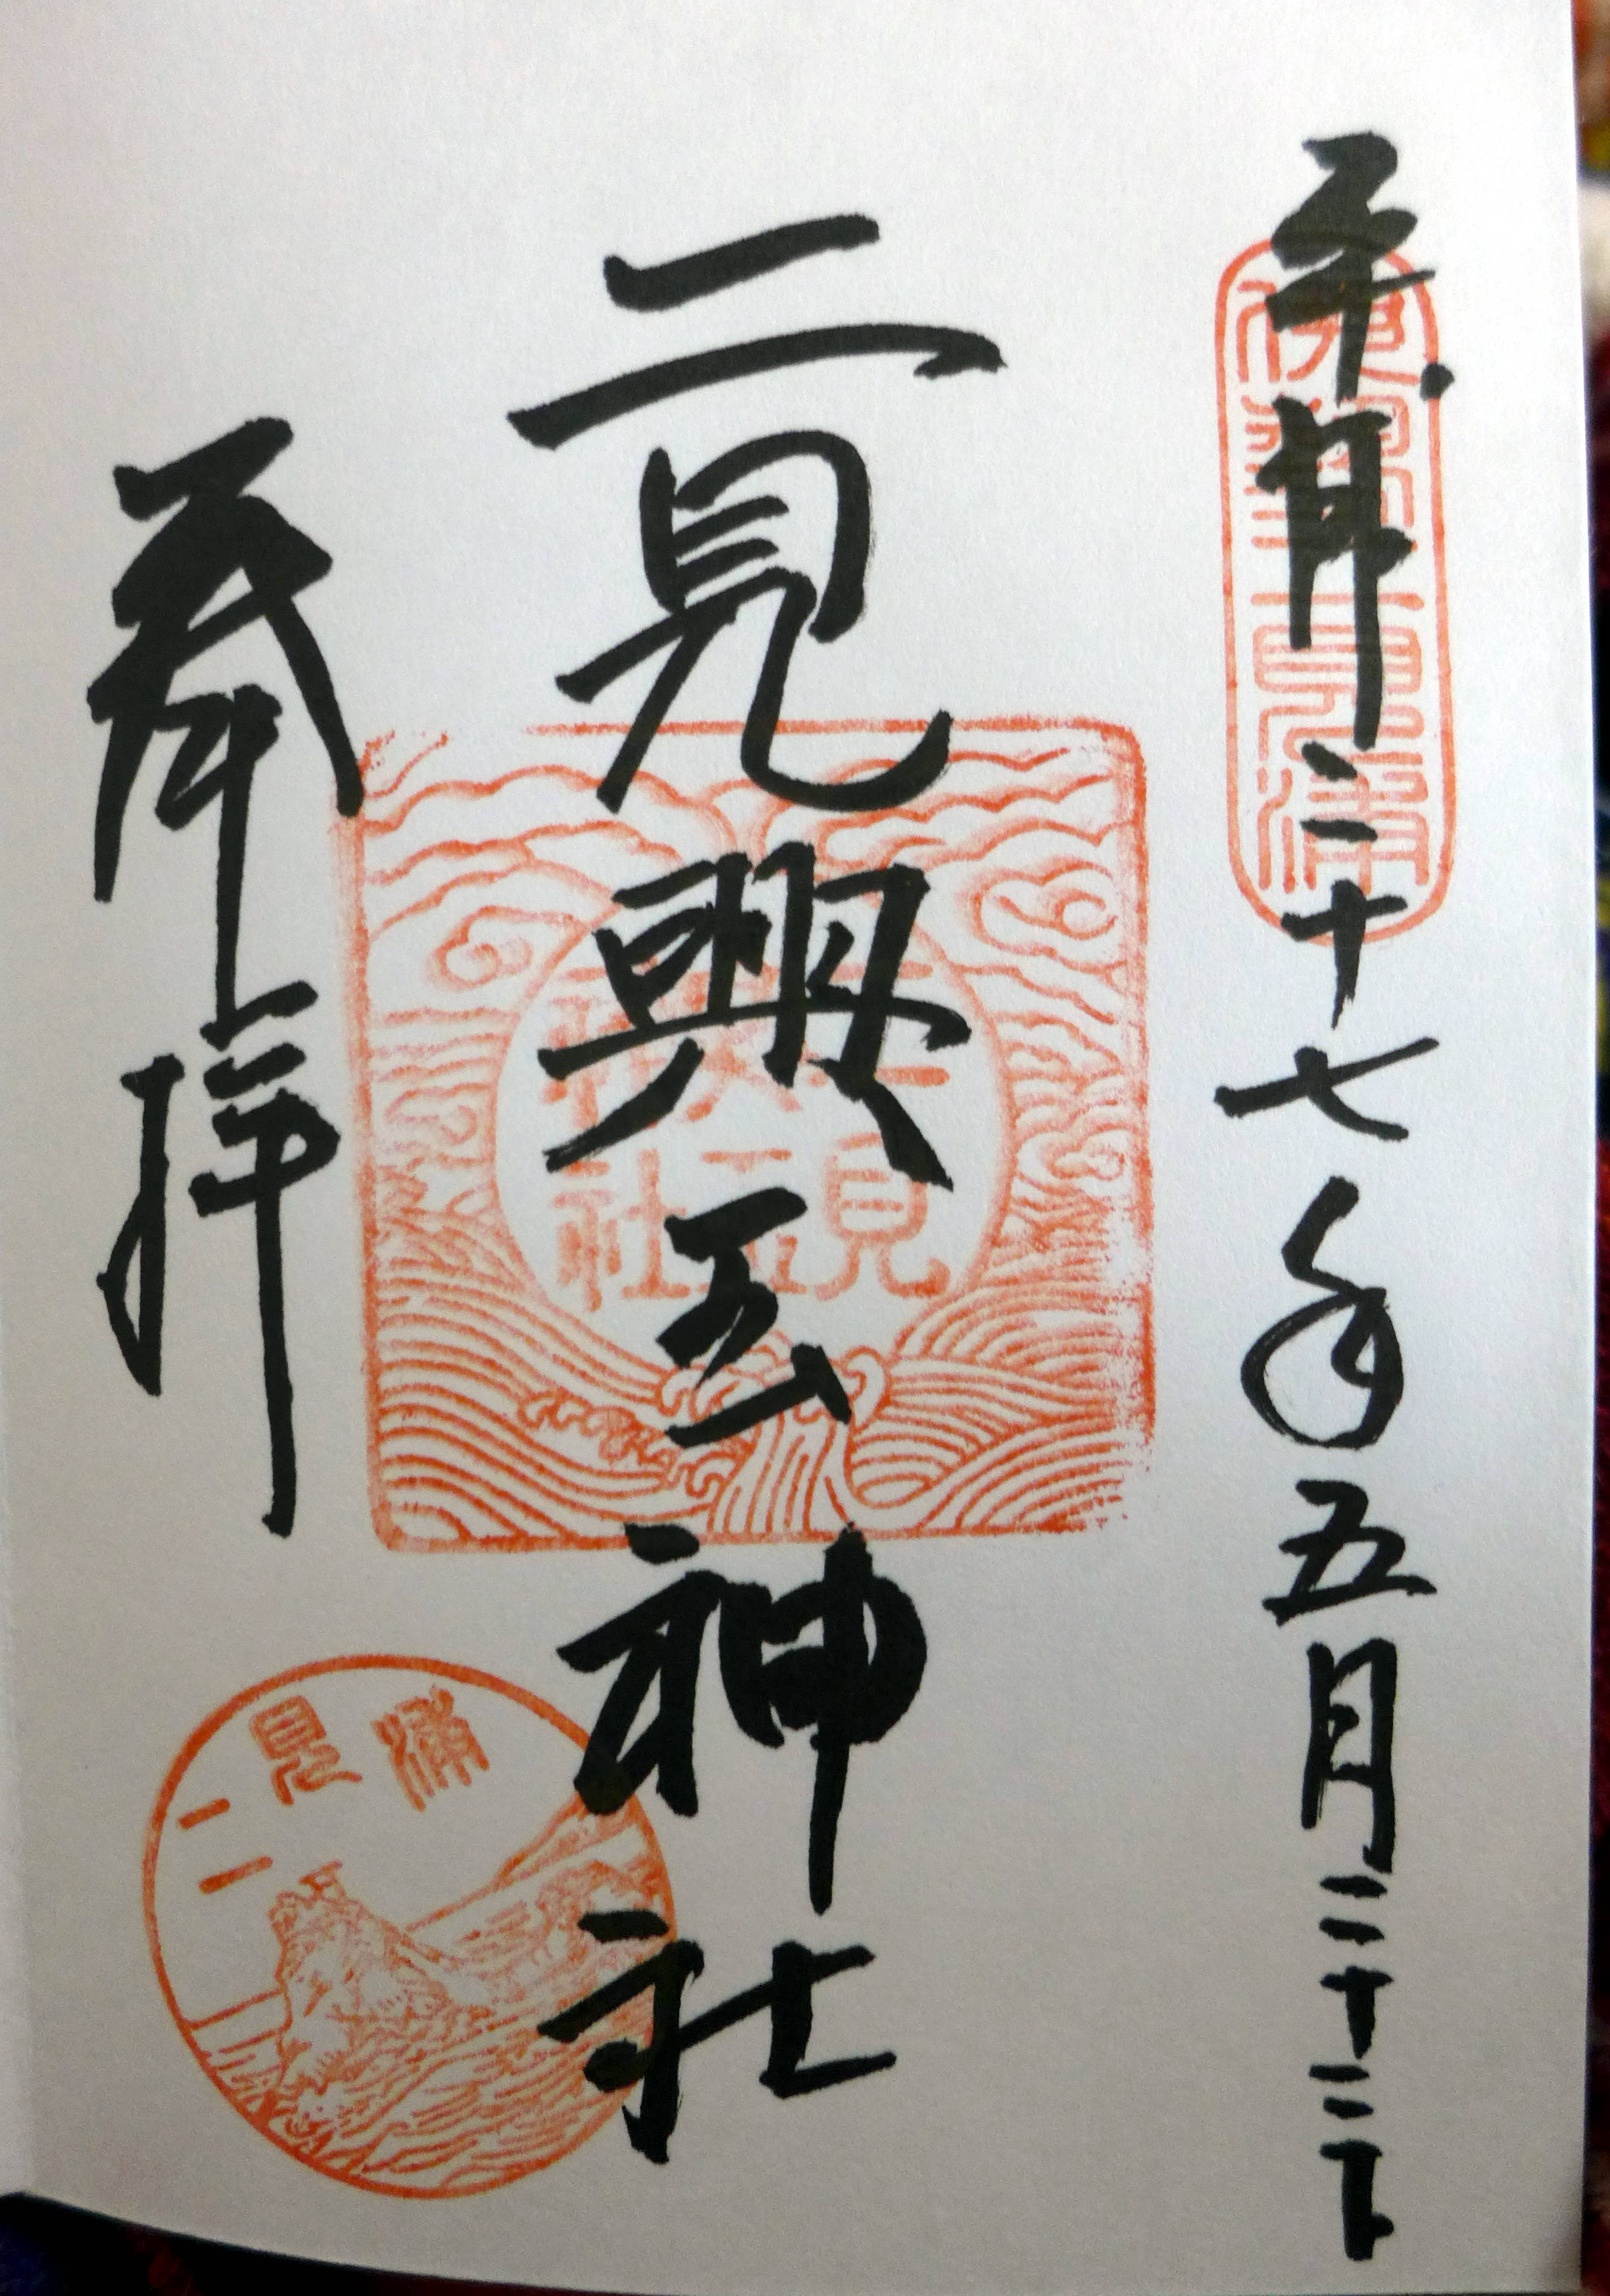 平成二十七年五月二十二日
伊勢二見浦
二見興玉神社
二見興玉神社
奉拝
二見浦